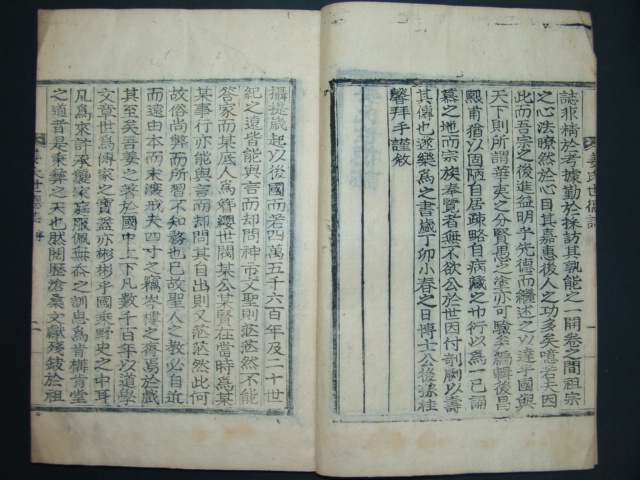 誌非精於考據勤於採訪其孰能之一開卷之間祖宗
之心法瞭然於心目其嘉惠後人之功多矣噫若夫因
此而吾宗之後進益明乎先德而繼述之以達乎國與
天下則所謂華夷之分賢愚之塗亦可驗矣編輯後昌
熙甫猶以固陋自居疎略自病藏之巾衍以爲一己誦
慕之地而宗族奉覽者無不欲公於世因付剞劂以壽
其傳也遂樂爲之書歲丁卯小春之日博士公後孫桂
馨拜手謹敘
姜氏世德誌
一
攝提歲起以後國而若四萬五千六百年及二十世
紀之遠皆能與言而却問神市文聖則茫茫然不能
答家而某底人爲簪纓世閥某公某賢在當時爲某
某事行亦能與言而却問其自出則又茫茫然此何
故俗尚弊而所習不知務也已故聖人之教必自近
而遠由本而末
其至矣吾姜之著於國中上下凡數千百年以道學
文章世爲傳家之寶蓋亦彬彬乎國乘野史之中耳
凡爲來許承襲家庭服佩無斁之訓思爲肯構肯堂
之道者是乘葬之天也然閱歷滄桑文獻殘缺於祖
姜氏世德誌 序
二